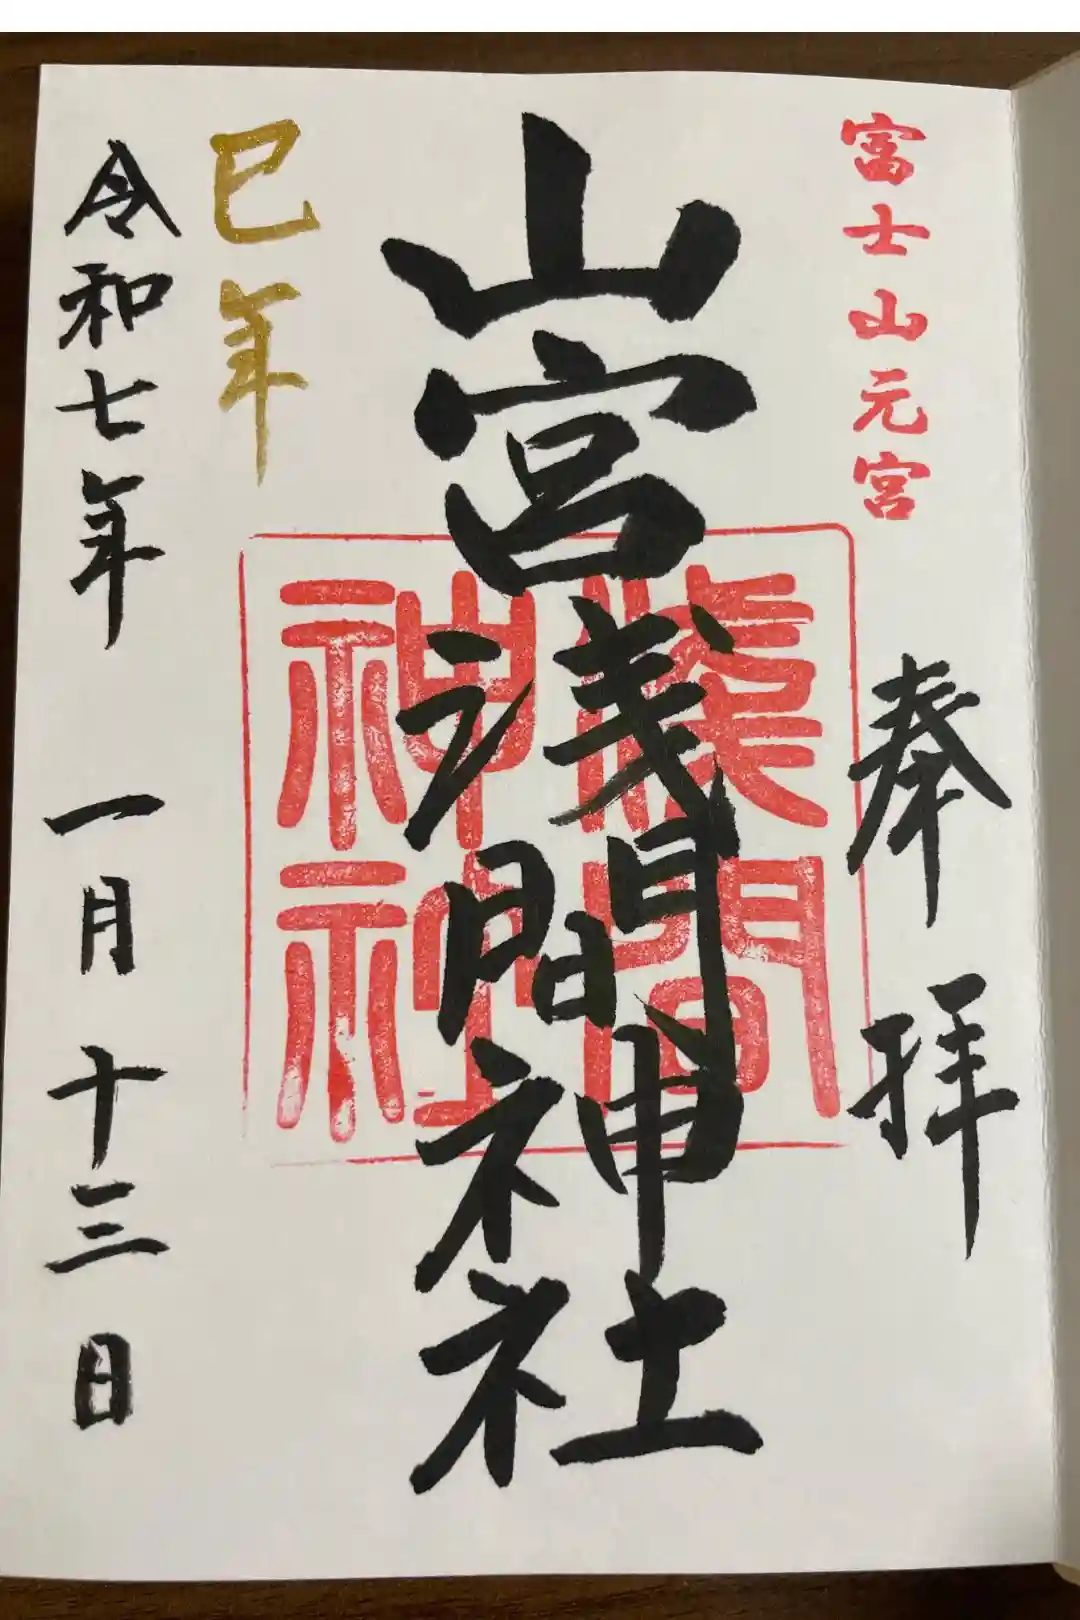 富士山元宮
奉拝
山宮浅間神社
淺間神社
巳年
令和七年 一月十三日